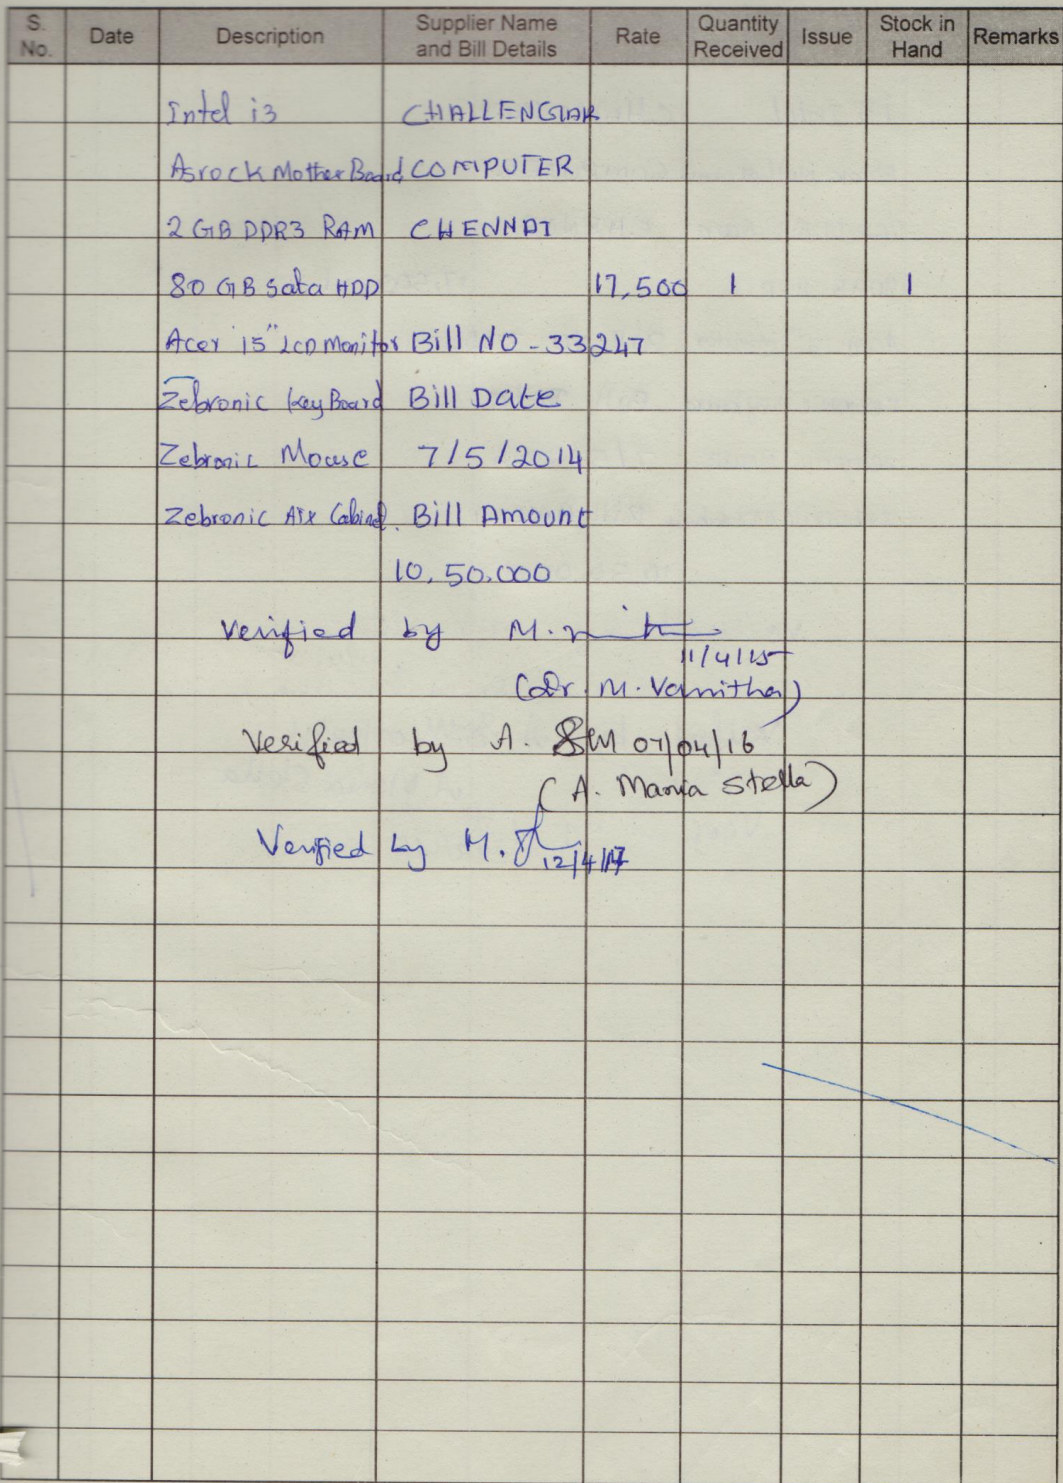 S. No. Date Description Supplier Name and Bill Details Rate Quantity Received Issue Stock in Hand Remarks
Intel i3 CHALLENGAR
Asrock Mother Board COMPUTER
2 GB DDR3 RAM CHENNAI
80 GB Sata HDD 17,500 1 1
Acer 15" LCD Monitor Bill NO - 33247
Zebronic Key Board Bill Date
Zebronic Mouse 7/5/2014
Zebronic ATX Cabinet. Bill Amount
10,50,000
Verified by M.
11/4/15
(Dr. M. Vanitha)
Verified by A. 07/04/16
(A. Maria Stella)
Verified by M.
12/4/17